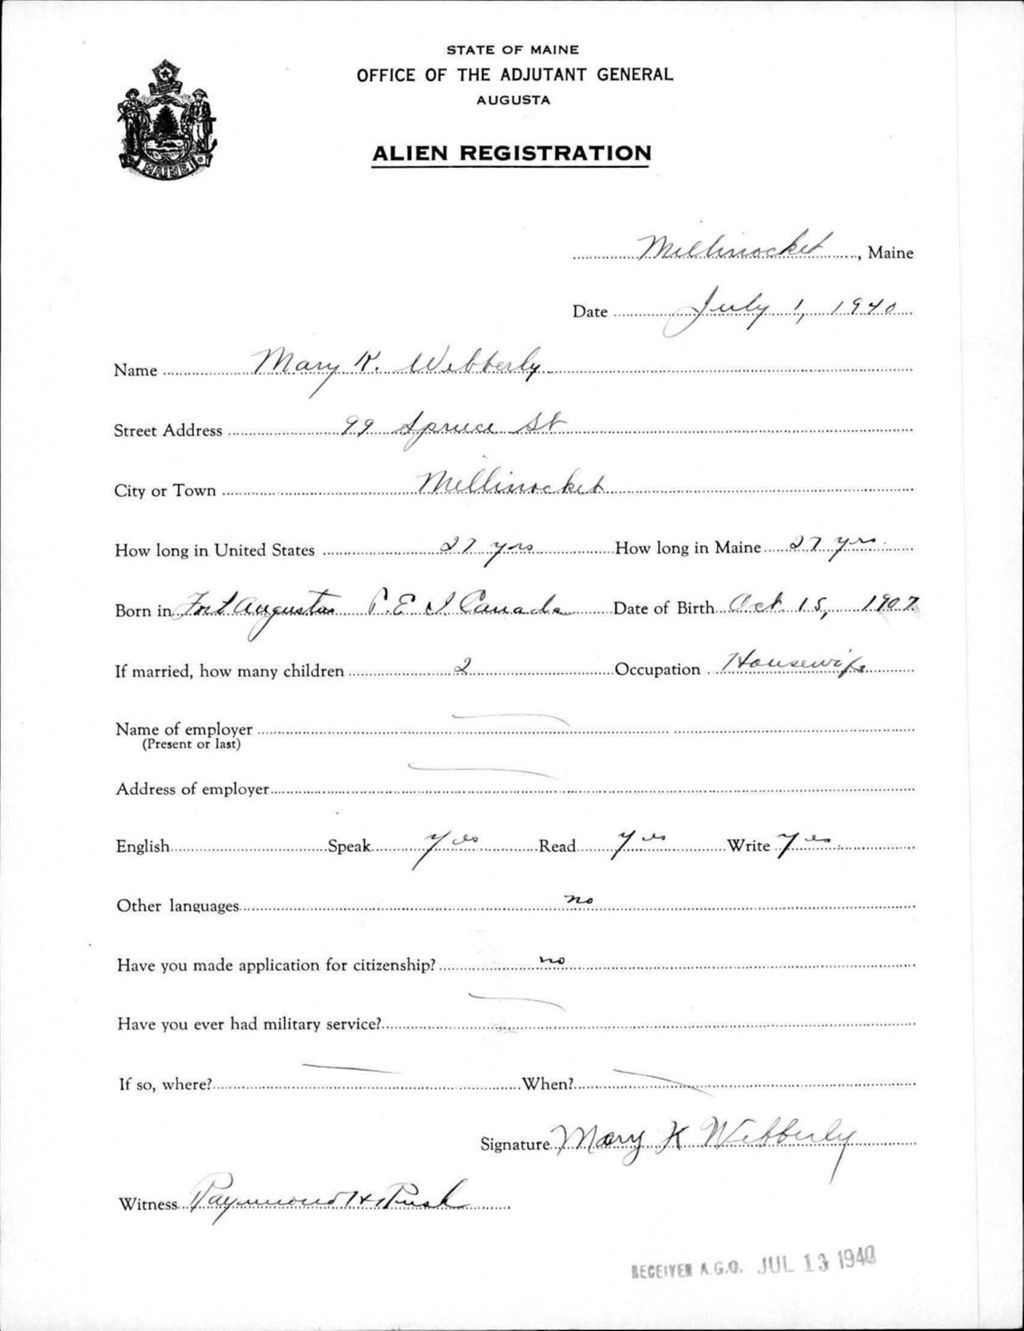 STATE OF MAINE
OFFICE OF THE ADJUTANT GENERAL
AUGUSTA
ALIEN REGISTRATION
MAINE
Millinocket, Maine
Date July 1, 1940
Name Mary K. Webberly
Street Address 99 Spruce St
City or Town Millinocket
How long in United States 27 yrs How long in Maine 27 yrs
Born in Fort Augustus P.E.I Canada Date of Birth Oct 15, 1907
If married, how many children 2 Occupation Housewife
Name of employer
(Present or last)
Address of employer
English Speak yes Read yes Write yes
Other languages no
Have you made application for citizenship? no
Have you ever had military service?
If so, where? When?
Signature Mary K Webberly
Witness Raymond H Rush
RECEIVED A.G.O. JUL 13 1940